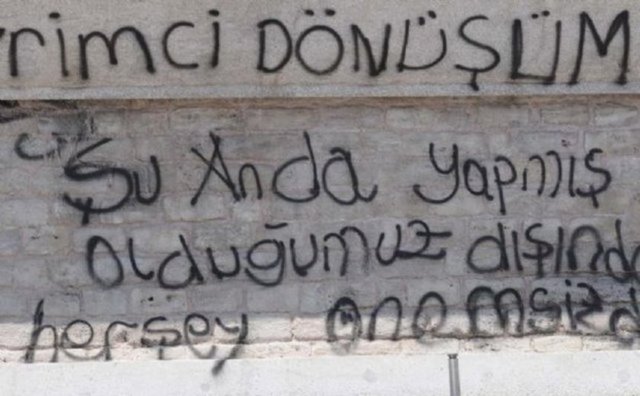 rimci DÖNÜŞÜM
Şu Anda yapmış
olduğumuz dışında
herşey önemsizd